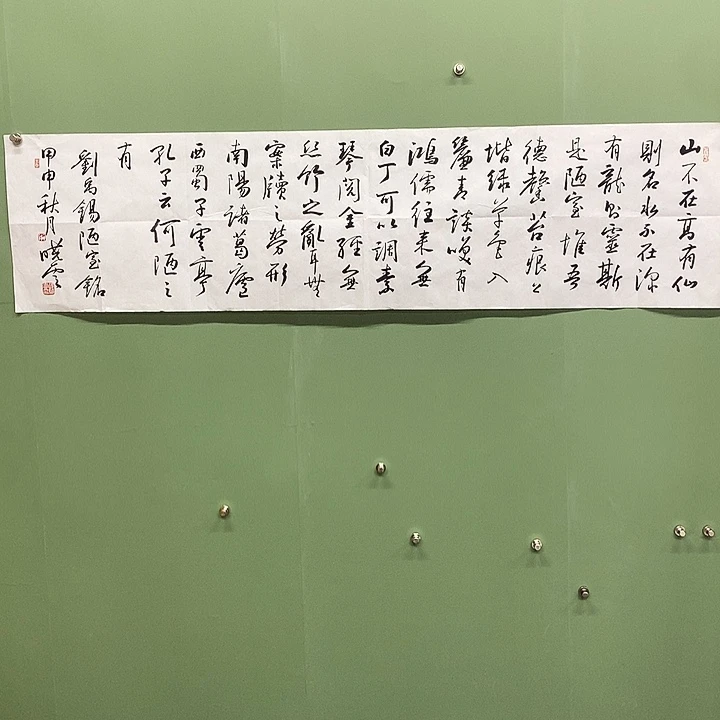 山不在高有仙
則名水不在深
有龍則靈斯
是陋室惟吾
德馨苔痕上
堦緑草色入
簾青談咲有
鴻儒往來無
白丁可以調素
琴閱金經無
絲竹之亂耳無
案牘之勞形
南陽諸葛廬
西蜀子雲亭
孔子云何陋之
有
劉禹錫陋室銘
甲申秋月曉雲